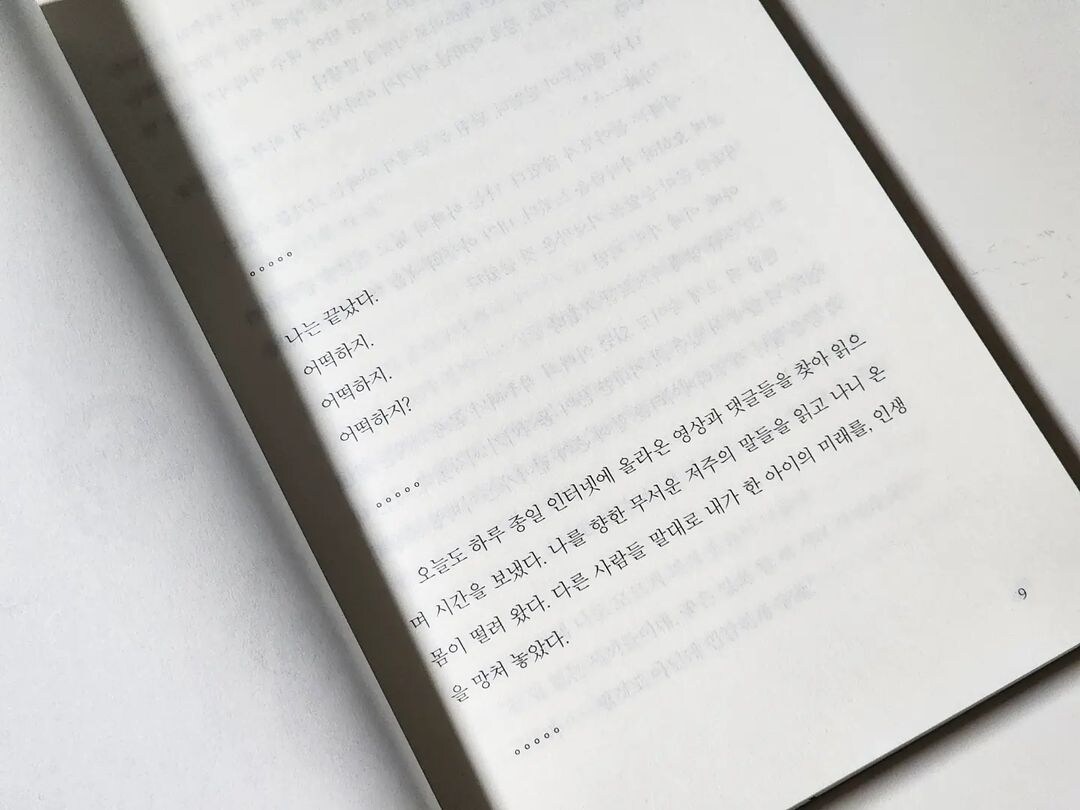 ○○○○○
나는 끝났다.
어떡하지.
어떡하지.
어떡하지?
○○○○○
오늘도 하루 종일 인터넷에 올라온 영상과 댓글들을 찾아 읽으
며 시간을 보냈다. 나를 향한 무서운 저주의 말들을 읽고 나니 온
몸이 떨려 왔다. 다른 사람들 말대로 내가 한 아이의 미래를, 인생
을 망쳐 놓았다.
○○○○○
9